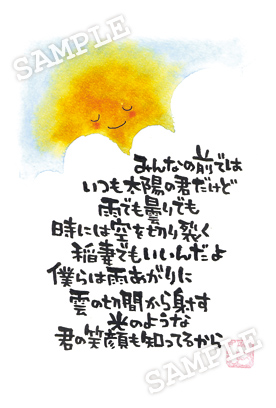 SAMPLE
みんなの前では
いつも太陽の君だけど
雨でも曇りでも
時には空を切り裂く
稲妻でもいいんだよ
僕らは雨あがりに
雲の切間から射す
光のような
君の笑顔も知ってるから
SAMPLE